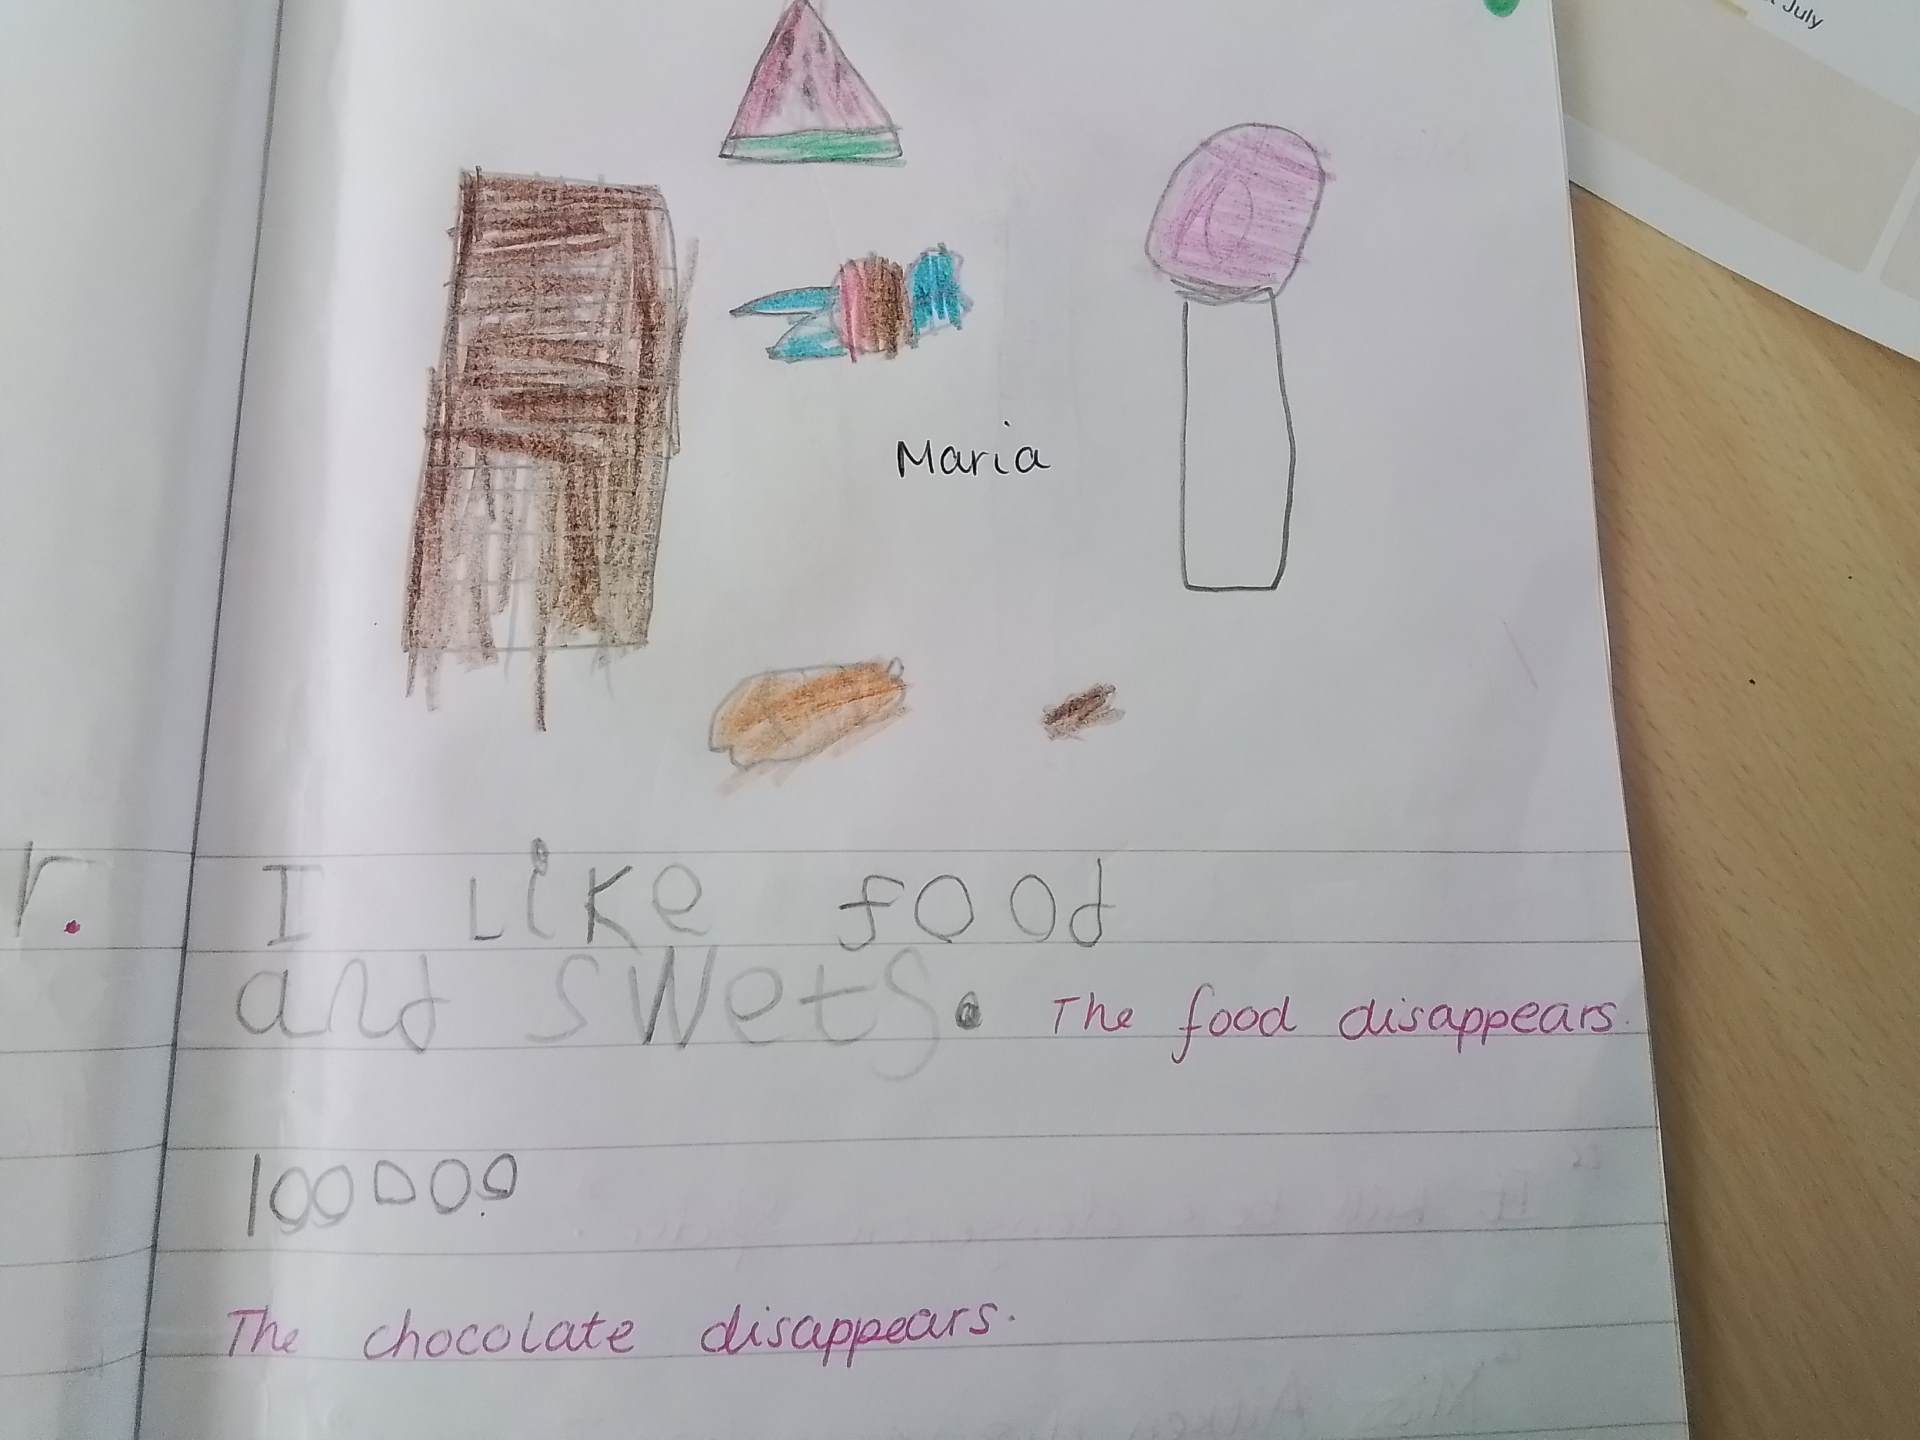 July
Maria
r.
I Like food
and swets. The food disappears.
100000
The chocolate disappears.